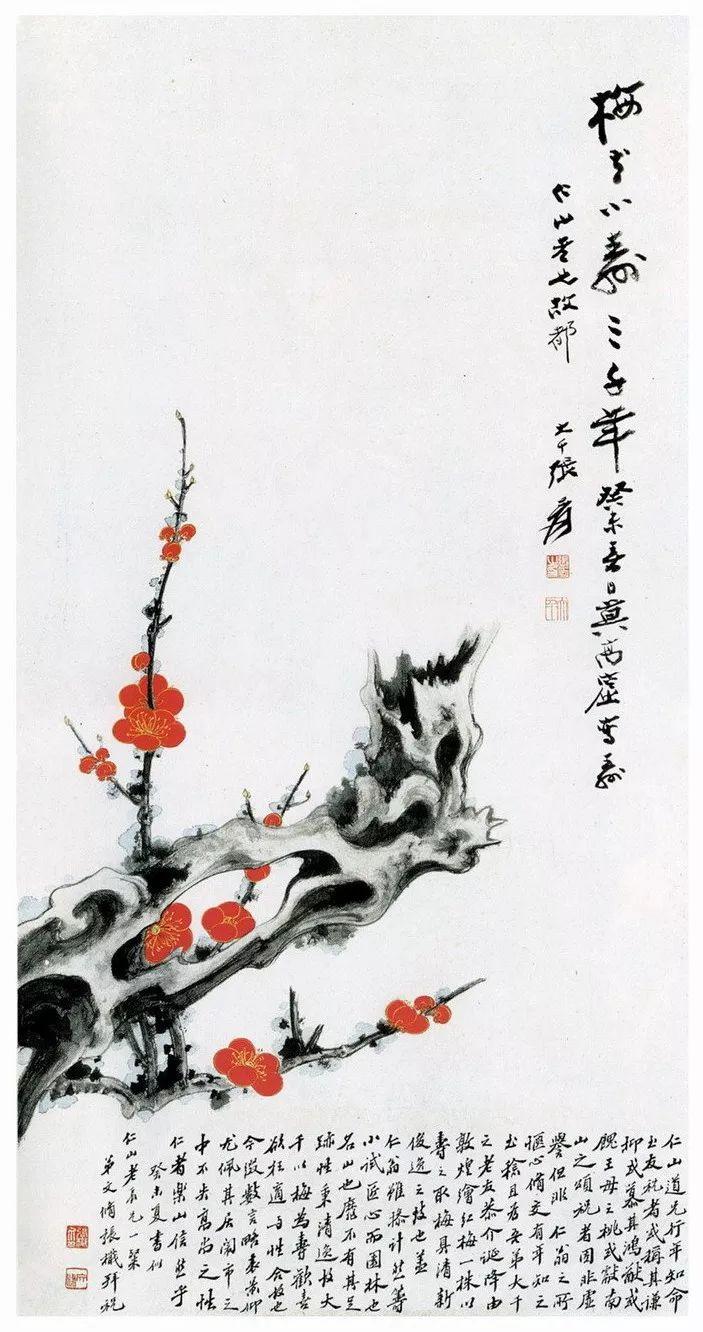 梅花小壽三千年 癸未春日莫高窟寫壽
仁山老兄故都
大千張爰
仁山道兄行年知命
至友祝者或稱其謙
抑或慕其鴻猷或
王母之桃或獻南
山之頌祝者固非虛
譽但非仁翁之所
愜心脩交有年知之
尤稔且為安弟大千
之老友恭介誕降由
敦煌繪紅梅一株以
壽之取梅具清新
俊逸之姿也蓋
仁翁雖操計然籌
小試匠心而園林也
名山也靡不有其足
跡性秉清逸故大
千以梅為壽歡喜
欲狂適與性合故也
今徵數言略表景仰
尤佩其居鬧市之
中不失高尚之性
仁者樂山信然乎
癸未夏書似
仁山老兄一粲
弟文脩張檝拜祝